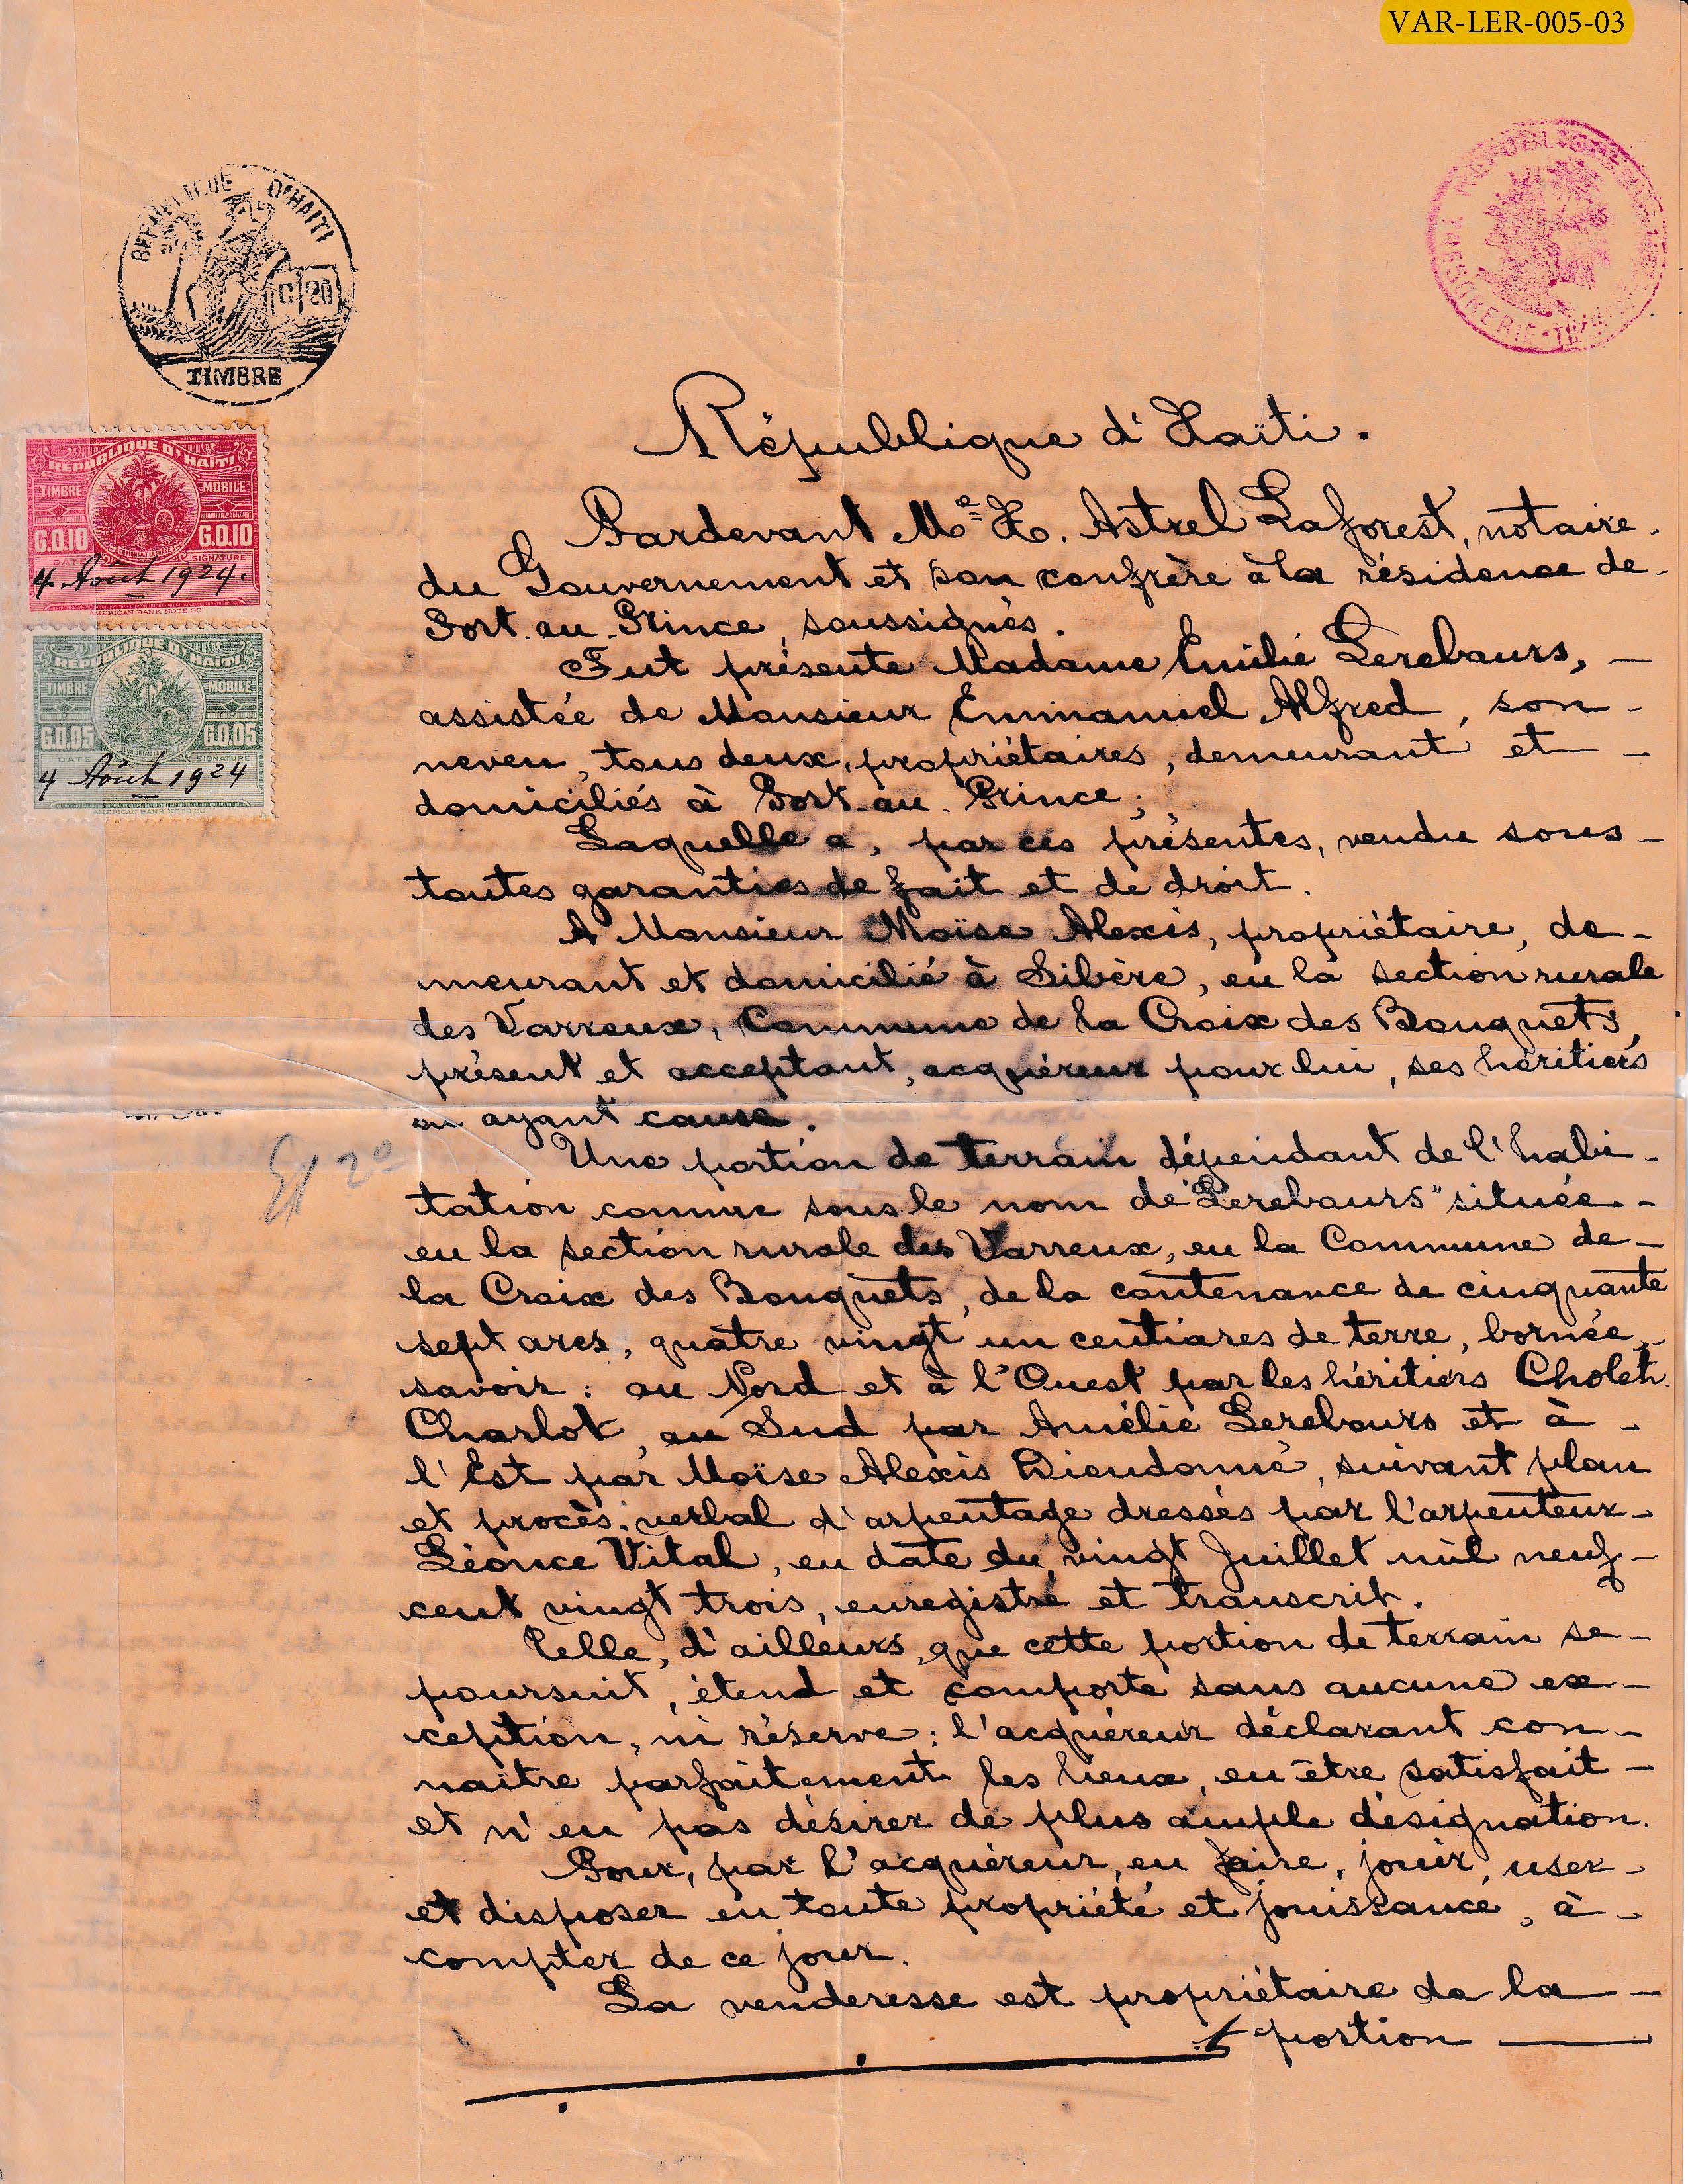 VAR-LER-005-03
REPUBLIQUE D'HAITI
0/20
TIMBRE
RÉPUBLIQUE D'HAÏTI
TIMBRE MOBILE
G.0.10 G.0.10
DATE SIGNATURE
4 Août 1924.
AMERICAN BANK NOTE CO
RÉPUBLIQUE D'HAÏTI
TIMBRE MOBILE
G.0.05 G.0.05
DATE SIGNATURE
4 Août 1924
AMERICAN BANK NOTE CO
République d'Haïti.
Pardevant Me H. Astrel Laforest, notaire
du Gouvernement et son confrère à la résidence de
Port-au-Prince, soussignés.
Fut présente Madame Emilie Lerebours,
assistée de Monsieur Emmanuel Alfred, son
neveu, tous deux, propriétaires, demeurant et
domiciliés à Port-au-Prince;
Laquelle a, par ces présentes, vendu sous
toutes garanties de fait et de droit.
A Monsieur Moïse Alexis, propriétaire, de-
meurant et domicilié à Sibère, en la section rurale
des Varreux, Commune de la Croix des Bouquets,
présent et acceptant, acquéreur pour lui, ses héritiers
ou ayant cause.
Une portion de terrain dépendant de l'habi-
tation connue sous le nom de "Lerebours" située
en la section rurale des Varreux, en la Commune de
la Croix des Bouquets, de la contenance de cinquante
sept ares, quatre vingt un centiares de terre, bornée
savoir: au Nord et à l'Ouest par les héritiers Choleh
Charlot, au Sud par Amélie Lerebours et à
l'Est par Moïse Alexis Dieudonné, suivant plan
et procès-verbal d'arpentage dressés par l'arpenteur
Léonce Vital, en date du vingt Juillet mil neuf
cent vingt trois, enregistré et transcrit.
Telle, d'ailleurs, que cette portion de terrain se
poursuit, étend et comporte sans aucune ex-
ception, ni réserve: l'acquéreur déclarant con-
naître parfaitement les lieux, en être satisfait
et n'en pas désirer de plus ample désignation.
Pour, par l'acquéreur, en faire, jouir, user
et disposer en toute propriété et jouissance, à
compter de ce jour.
La venderesse est propriétaire de la
portion